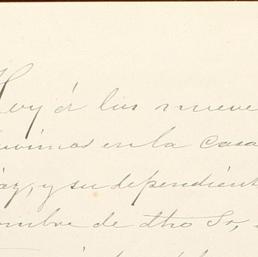 Hoy á las nueve
uvimos en la casa
áz, y su dependient
ombre de dho Sr,